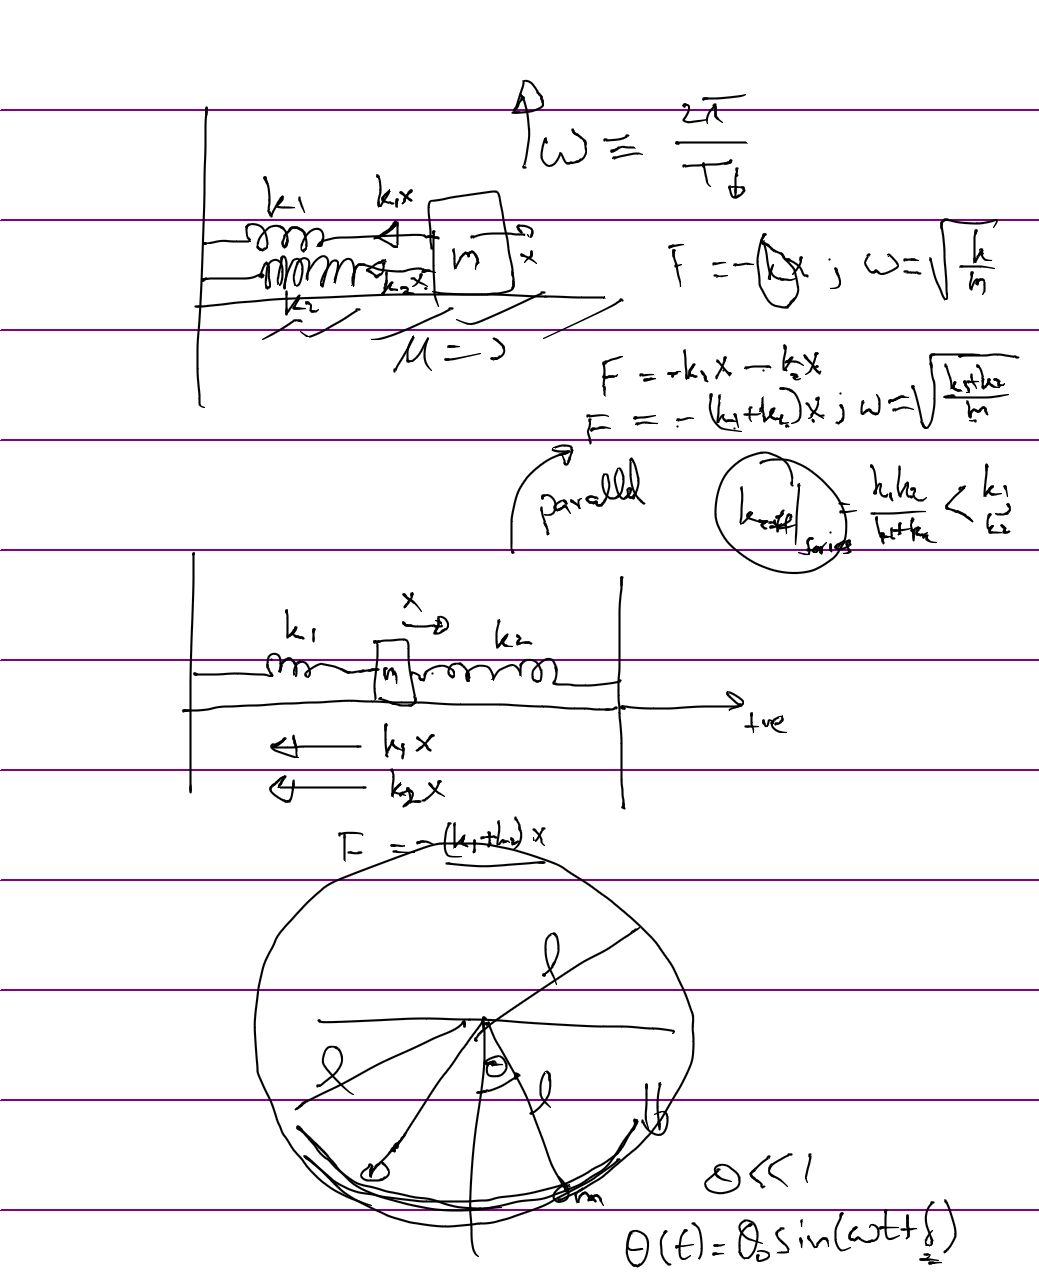 ω ≡ 2π/T
k₁
k₁x
m
x
k₂x
k₂
F = -kx ; ω = √(k/m)
μ = 0
F = -k₁x - k₂x
F = -(k₁+k₂)x ; ω = √((k₁+k₂)/m)
parallel
k_eff|series = k₁k₂/(k₁+k₂) < k₁, k₂
x
k₁
k₂
m
+ve
k₁x
k₂x
F = -(k₁+k₂)x
l
l
θ
l
m
θ << 1
θ(t) = θ₀ sin(ωt + δ)